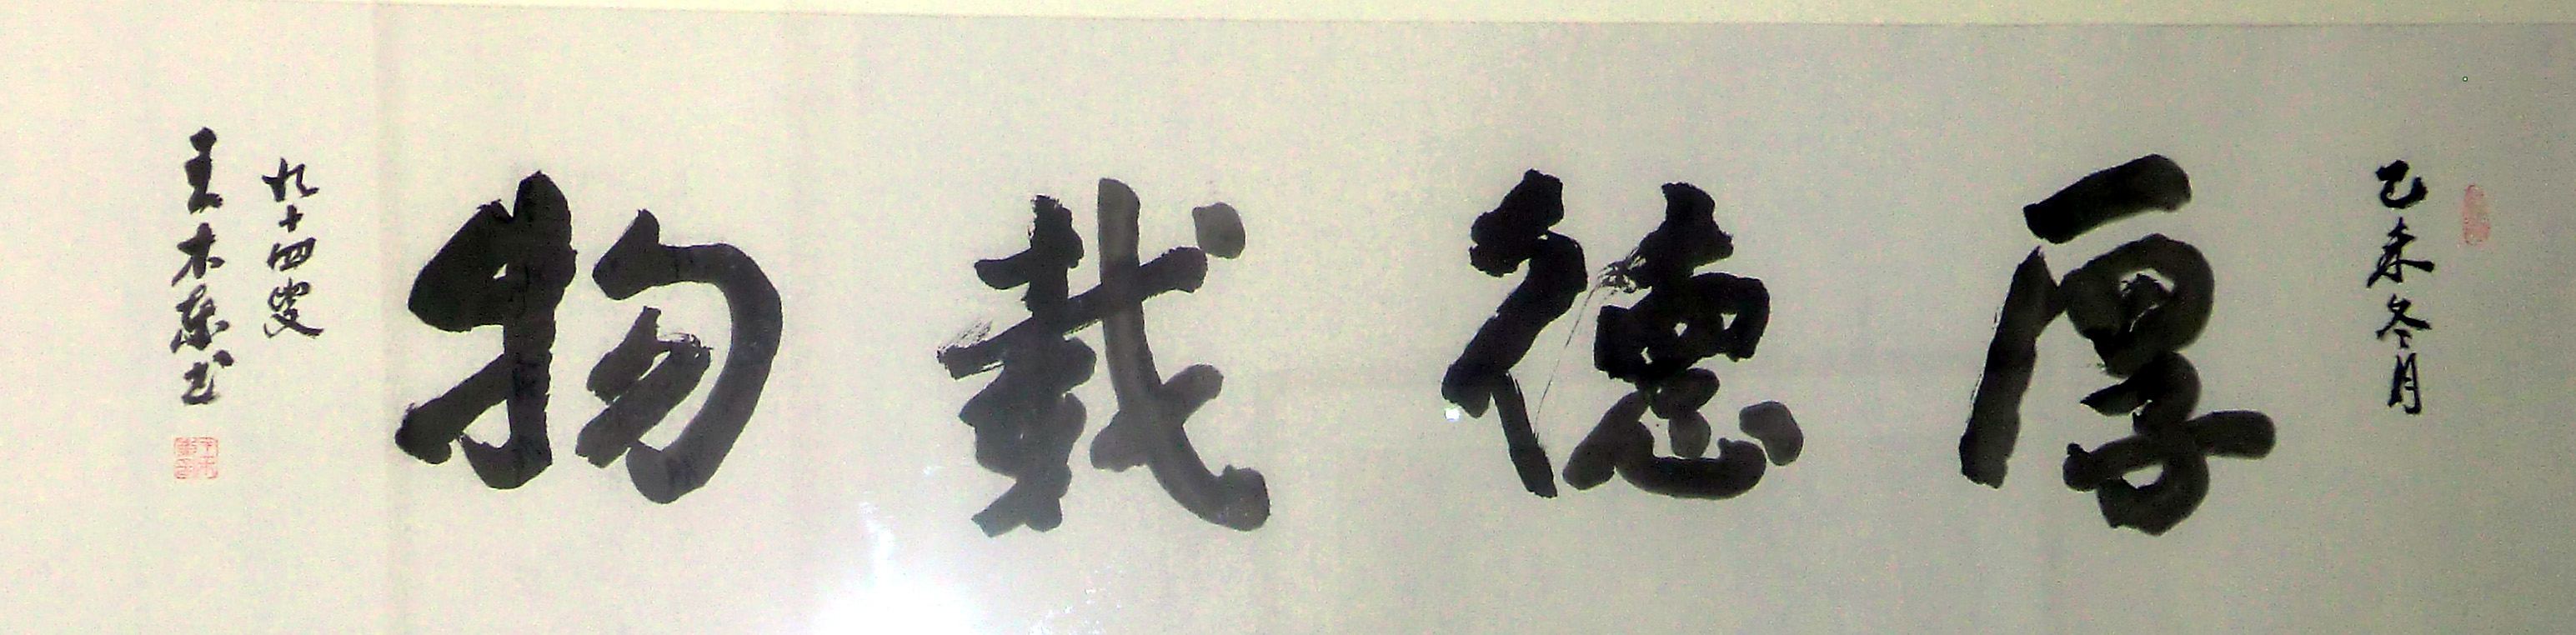 乙未冬月
厚德載物
九十四叟
王木東书